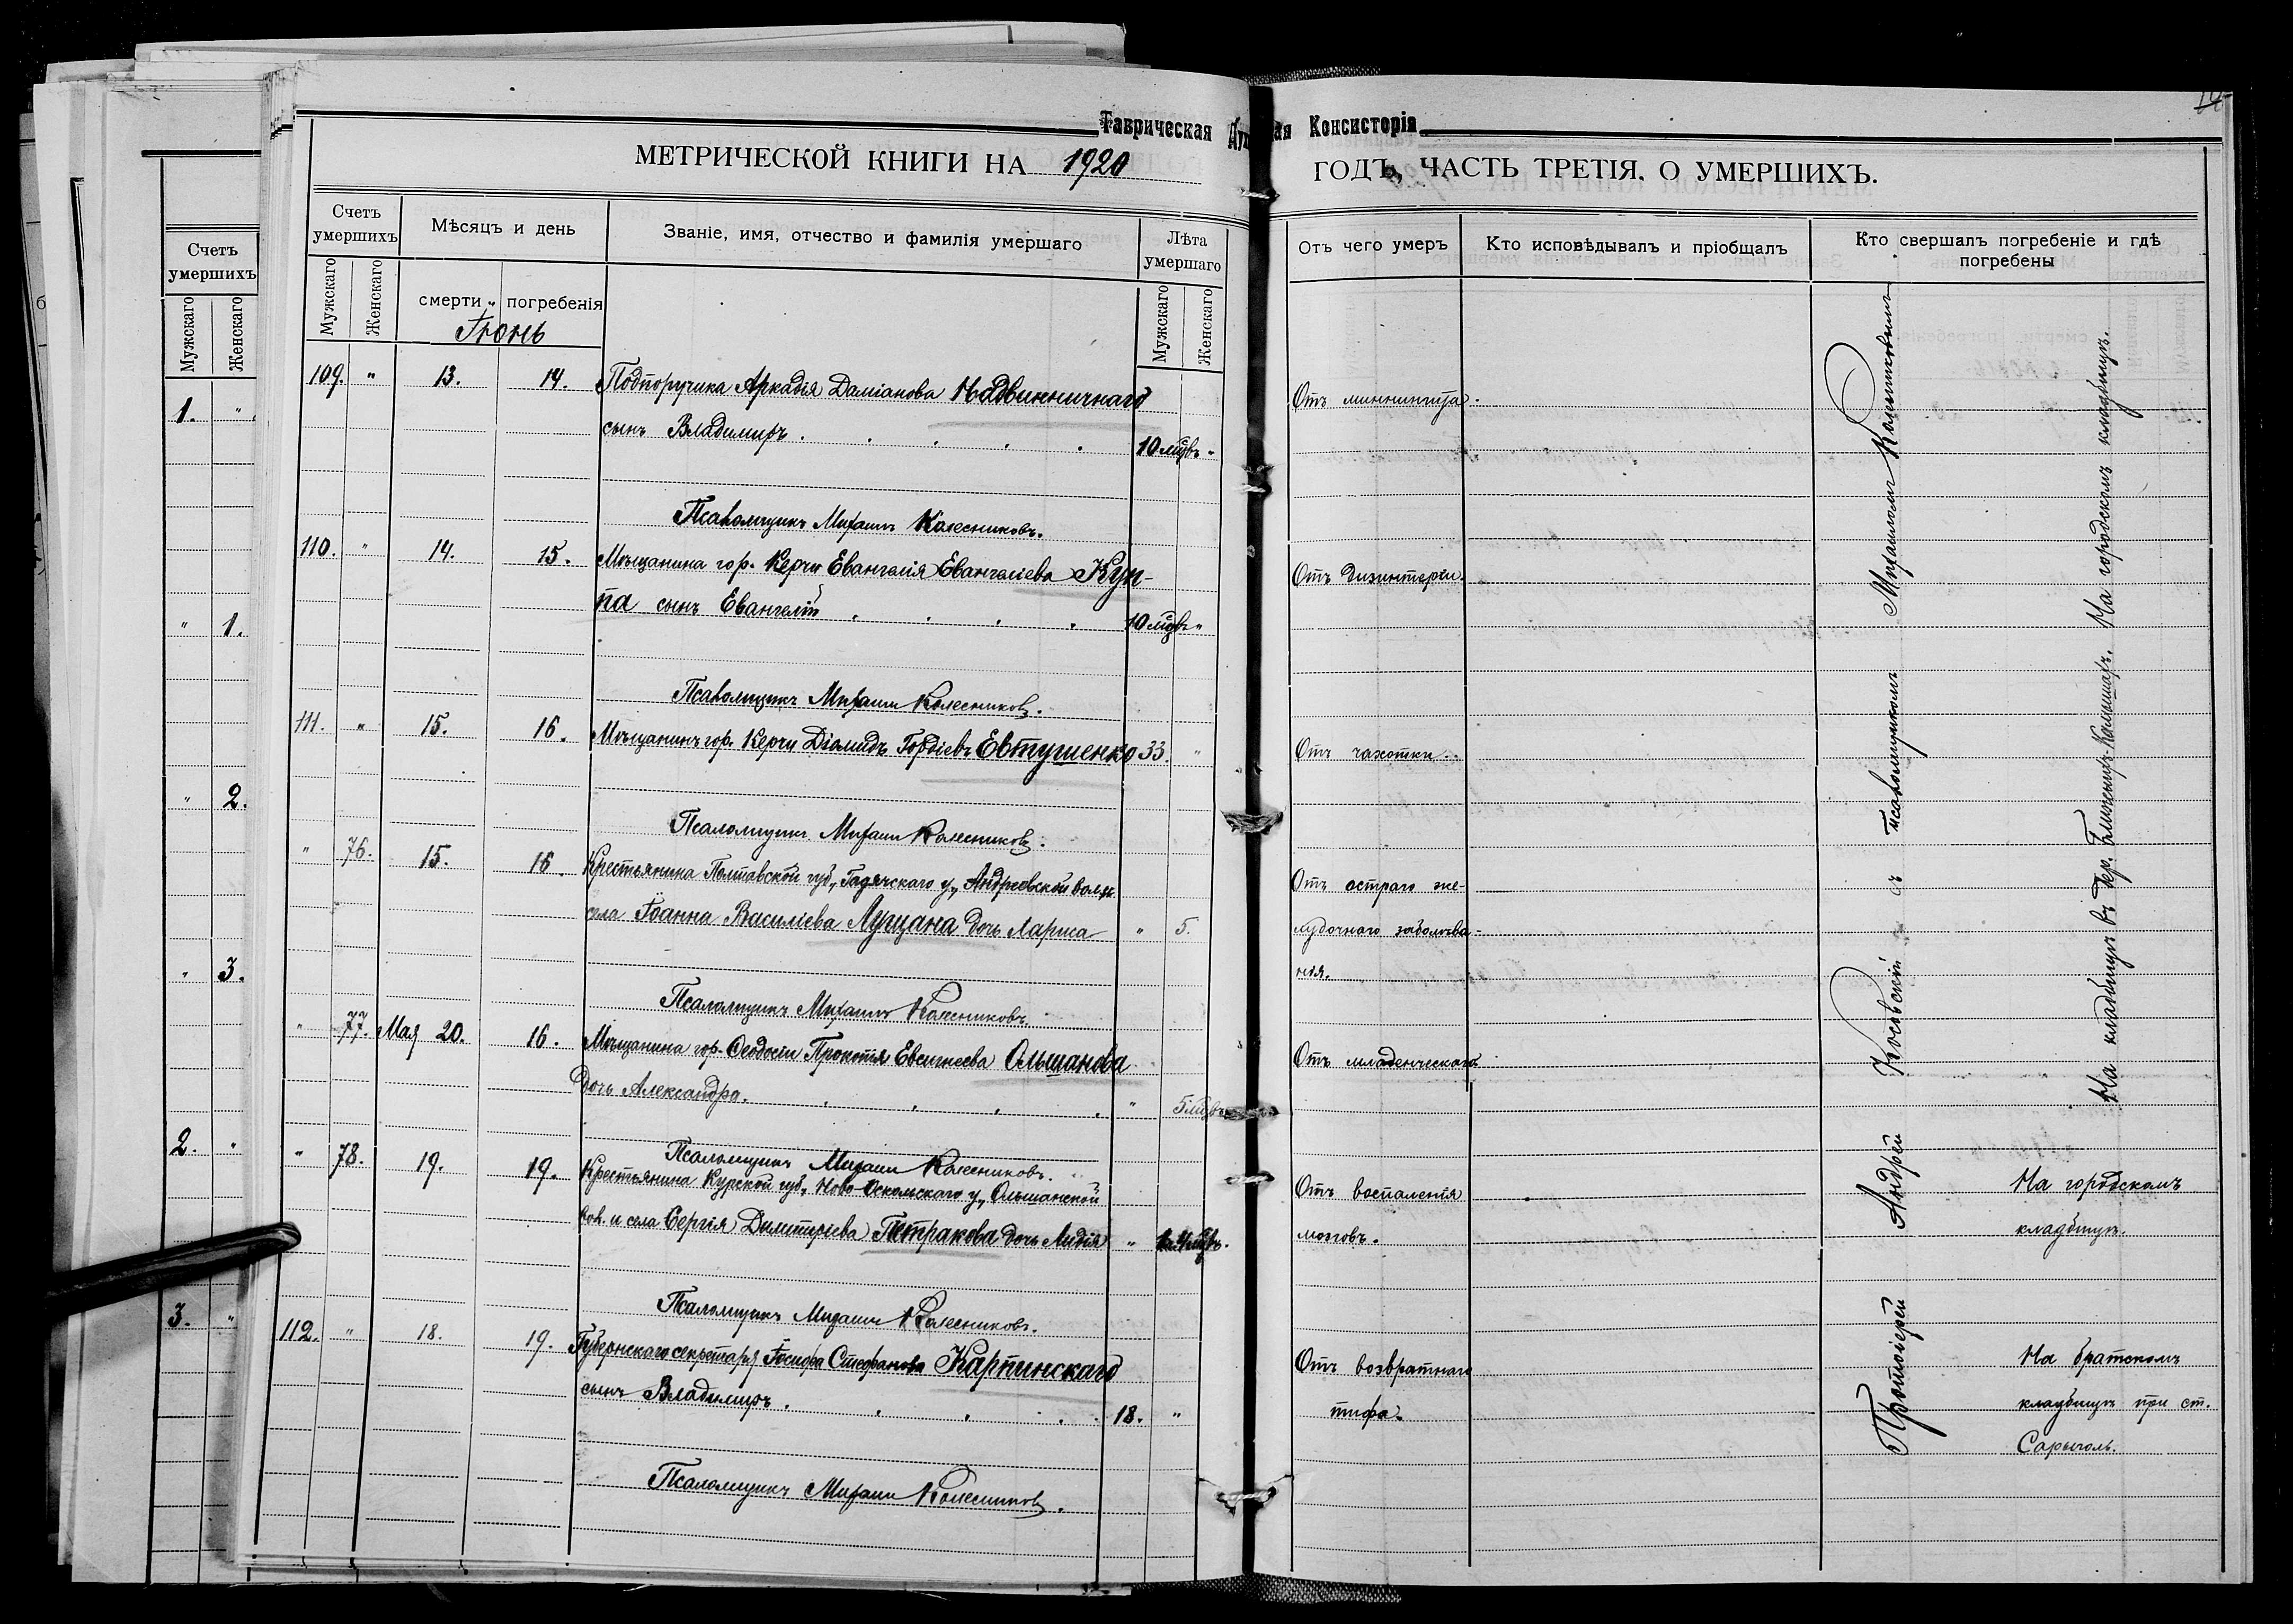 Таврическая Духовная Консисторія
МЕТРИЧЕСКОЙ КНИГИ НА 1920 ГОДЪ, ЧАСТЬ ТРЕТІЯ, О УМЕРШИХЪ.
Счетъ умершихъ
Мужскаго
Женскаго
1. "
" 1.
" 2.
" 3.
2. "
3. "
Счетъ умершихъ
Мужскаго
Женскаго
Мѣсяцъ и день
смерти
погребенія
Званіе, имя, отчество и фамилія умершаго
Лѣта умершаго
Мужскаго
Женскаго
Отъ чего умеръ
Кто исповѣдывалъ и пріобщалъ
Кто свершалъ погребеніе и гдѣ погребены
Іюнь
109. " 13. 14. Подпоручика Аркадія Даміанова Надвинничнаго
сынъ Владимиръ. 10 мцвъ "
Отъ миннингита.
Псаломщикъ Михаилъ Колесниковъ.
110. " 14. 15. Мѣщанина гор. Керчи Евангелія Евангеліева Куп-
па сынъ Евангелій 10 мцвъ "
Отъ дизинтеріи.
Псаломщикъ Михаилъ Колесниковъ.
111. " 15. 16. Мѣщанинъ гор. Керчи Діамидъ Гордіевъ Евтушенко 33. "
Отъ чахотки.
Псаломщикъ Михаилъ Колесниковъ.
" 76. 15. 16. Крестьянина Полтавской губ., Гадячскаго у., Андреевской вол. и
села Іоанна Василіева Луцана дочь Лариса " 5.
Отъ остраго же-
лудочнаго заболѣва-
нія.
Псаломщикъ Михаилъ Колесниковъ.
" 77. Мая 20. 16. Мѣщанина гор. Ѳеодосіи Прокопія Евсигнеева Ольшанова
дочь Александра. " 5 мцвъ
Отъ младенческаго
Псаломщикъ Михаилъ Колесниковъ.
" 78. 19. 19. Крестьянина Курской губ., Ново-Оскольскаго у., Ольшанской
вол. и села Сергія Димитріева Петракова дочь Лидія "
Отъ воспаленія
мозговъ.
На городскомъ
кладбищѣ.
Псаломщикъ Михаилъ Колесниковъ.
112. " 18. 19. Губернскаго секретаря Іосифа Стефанова Карпинскаго
сынъ Владимиръ. 18. "
Отъ возвратнаго
тифа.
На братскомъ
кладбищѣ при ст.
Сарыголь.
Псаломщикъ Михаилъ Колесниковъ.
Протоіерей Андрей Косовскій съ псаломщикомъ Михаиломъ Колесниковымъ
На кладбищѣ въ дер. На городскомъ кладбищѣ.